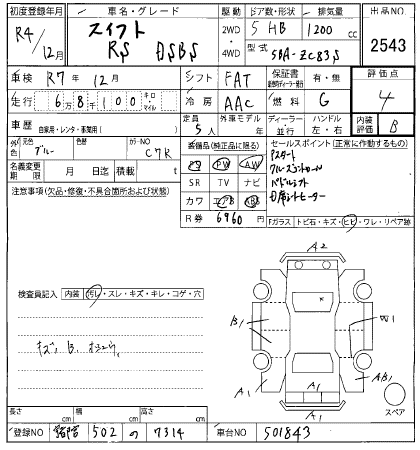 初度登録年月 車名・グレード 駆動 ドア数・形状 排気量 出品NO
R4/12月 スイフト RS DSBS 2WD・4WD 5 HB 1200cc 2543
型式 5BA-ZC83S
車検 R7年12月 シフト FAT 保証書 有・無 評価点
走行 6万8千100 キロ・マイル 冷房 AAC 燃料 G 4
車歴 自家用・レンタ・事業用( ) 定員 5人 外車モデル年 ディーラー・並行 ハンドル 左・右 内装評価 B
外色 元色 ブルー 色替 カラーNO C7R
装備品(純正品に限る) セールスポイント(正常に作動するもの)
名義変更期限 月 日迄 積載 t
PS PW AW
SR TV ナビ
カワ エアB ABS
R券 6960円
Pスタート
クルーズコントロール
パドルシフト
D席シートヒーター
注意事項(欠品・修復・不具合箇所および状態)
Fガラス トビ石・キズ・ヒビ・ワレ・リペア跡
検査員記入 内装 汚レ・スレ・キズ・キレ・コゲ・穴
A2
B1
W1
A1
A1
A1
AB1
スペア
長さ cm 幅 cm 高さ cm
登録NO 502 の 7314 車台NO 501843